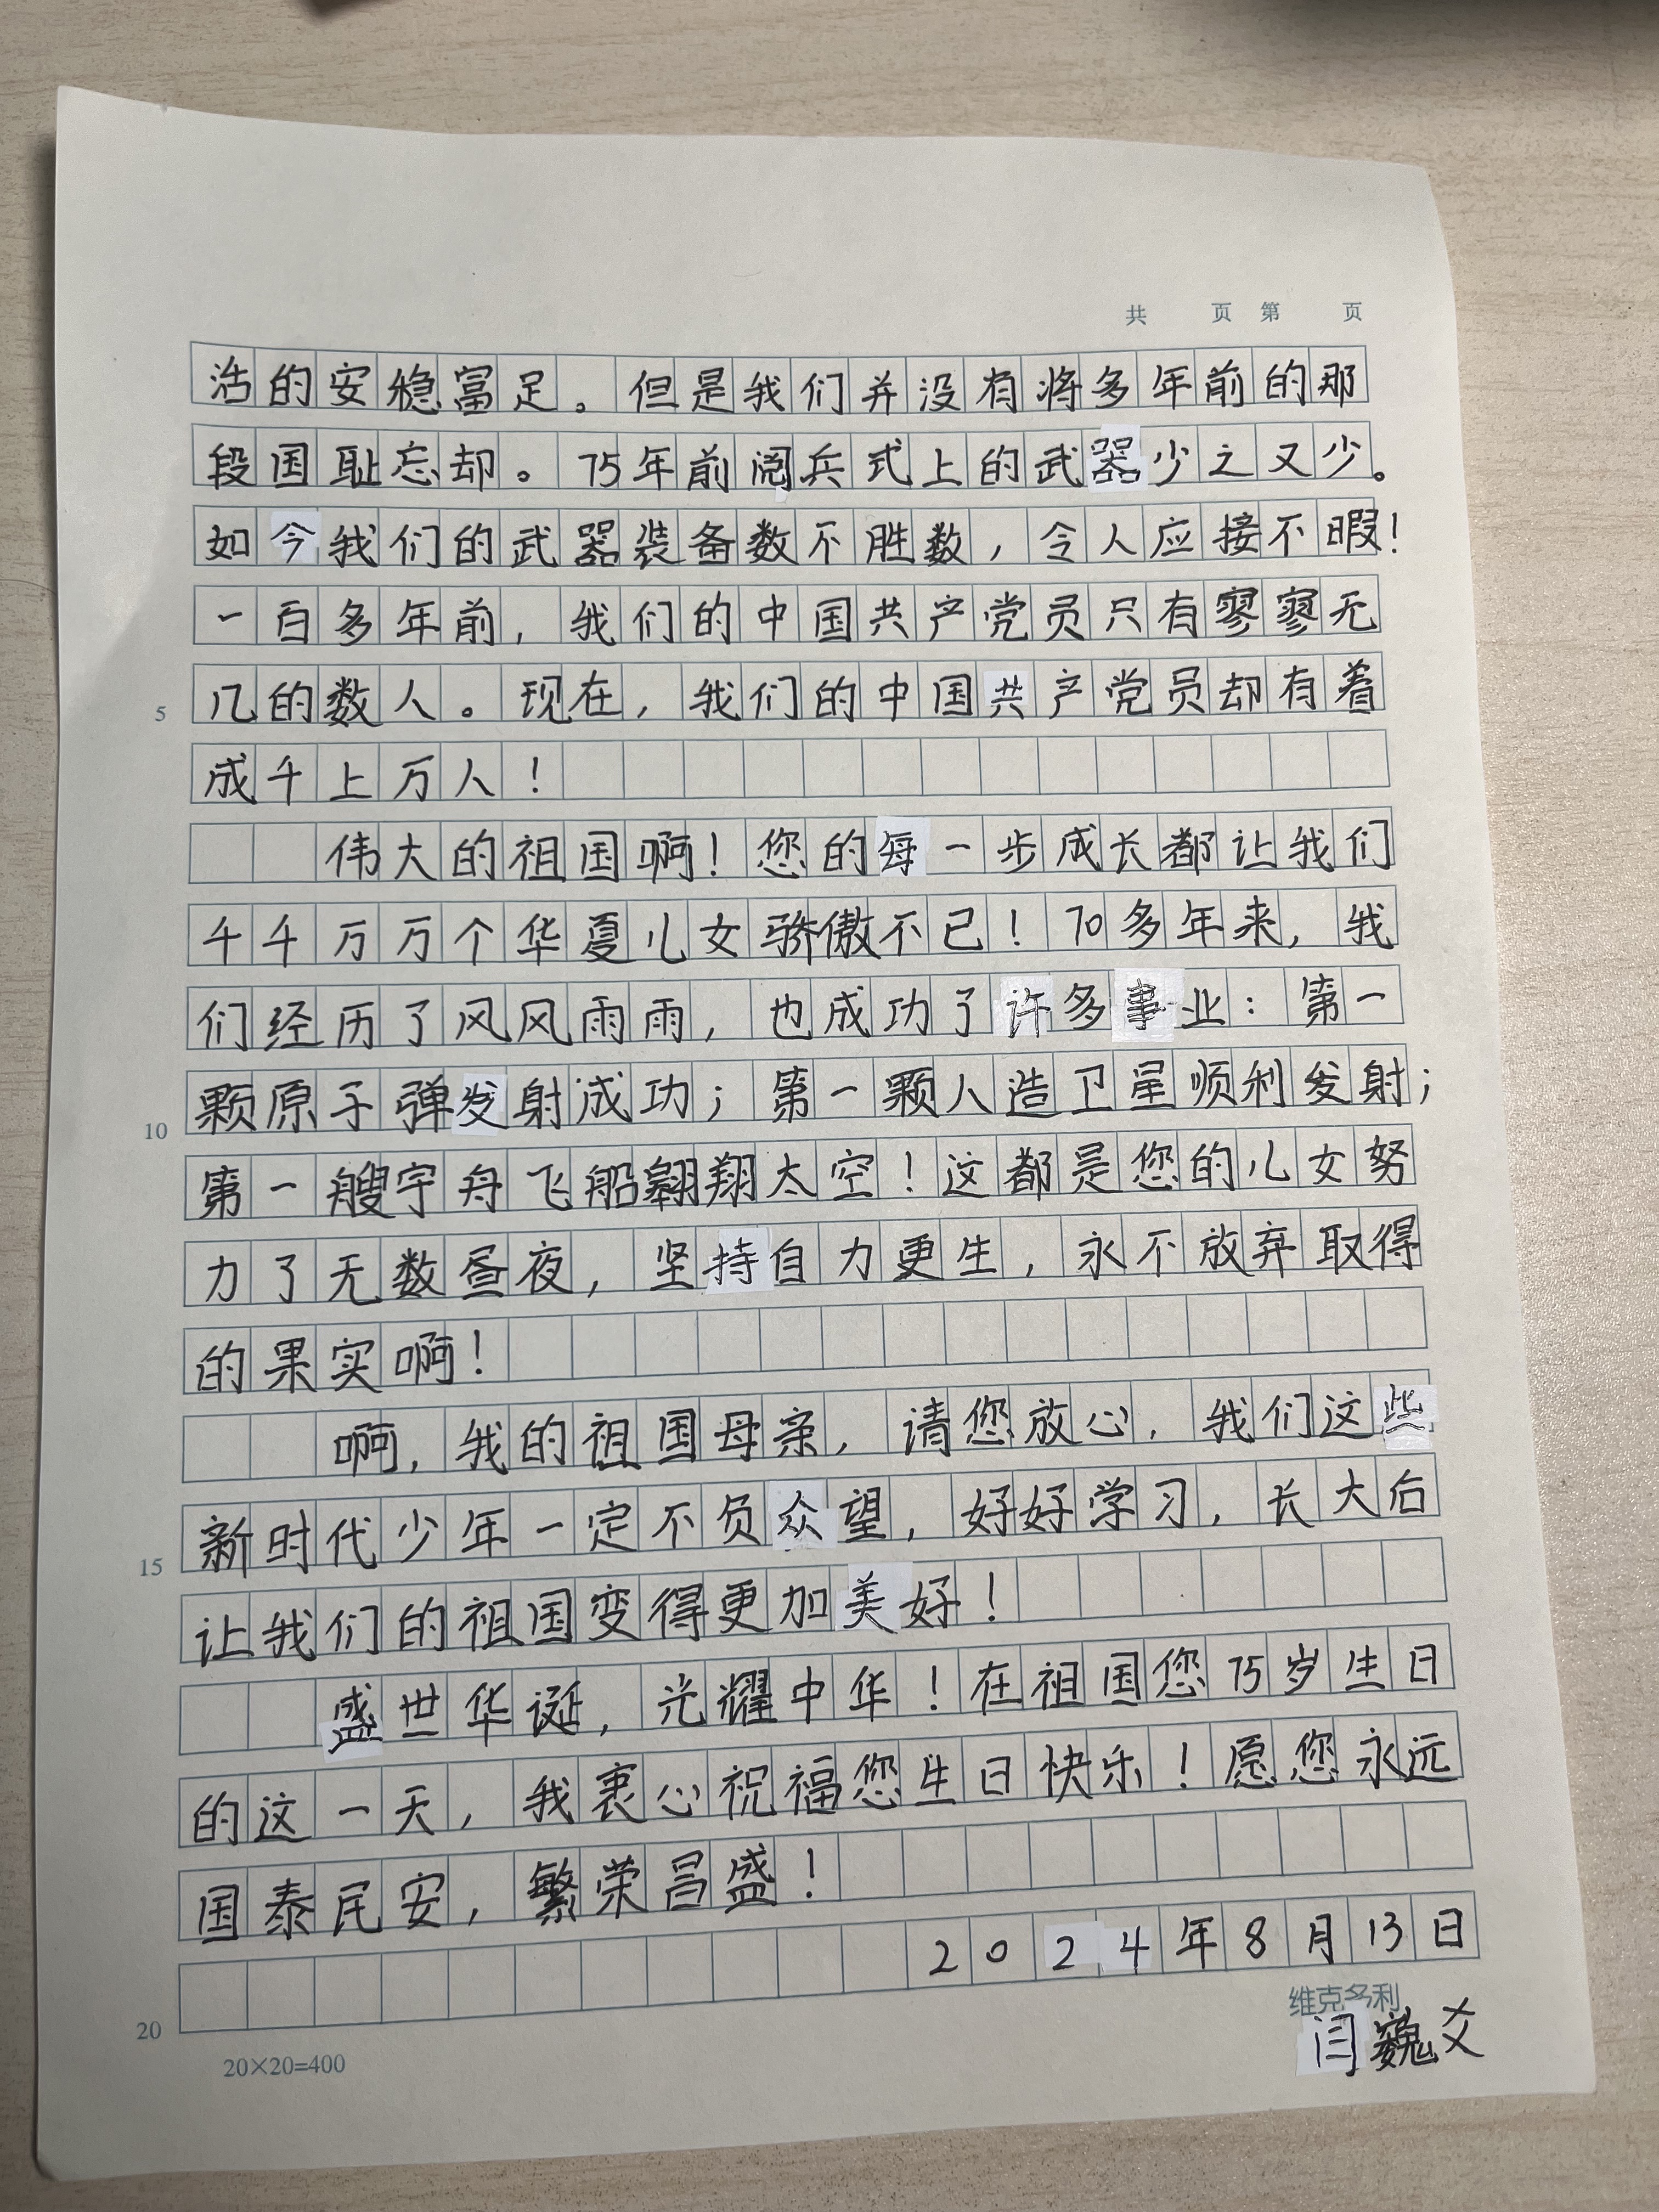 共 页 第 页
活的安稳富足。但是我们并没有将多年前的那
段国耻忘却。75年前阅兵式上的武器少之又少。
如今我们的武器装备数不胜数，令人应接不暇！
一百多年前，我们的中国共产党员只有寥寥无
几的数人。现在，我们的中国共产党员却有着
5
成千上万人！
伟大的祖国啊！您的每一步成长都让我们
千千万万个华夏儿女骄傲不已！70多年来，我
们经历了风风雨雨，也成功了许多事业：第一
颗原子弹发射成功；第一颗人造卫星顺利发射；
10
第一艘宇舟飞船翱翔太空！这都是您的儿女努
力了无数昼夜，坚持自力更生，永不放弃取得
的果实啊！
啊，我的祖国母亲，请您放心，我们这些
新时代少年一定不负众望，好好学习，长大后
15
让我们的祖国变得更加美好！
盛世华诞，光耀中华！在祖国您75岁生日
的这一天，我衷心祝福您生日快乐！愿您永远
国泰民安，繁荣昌盛！
2024年8月13日
20
维克多利
20×20=400
闫巍爻